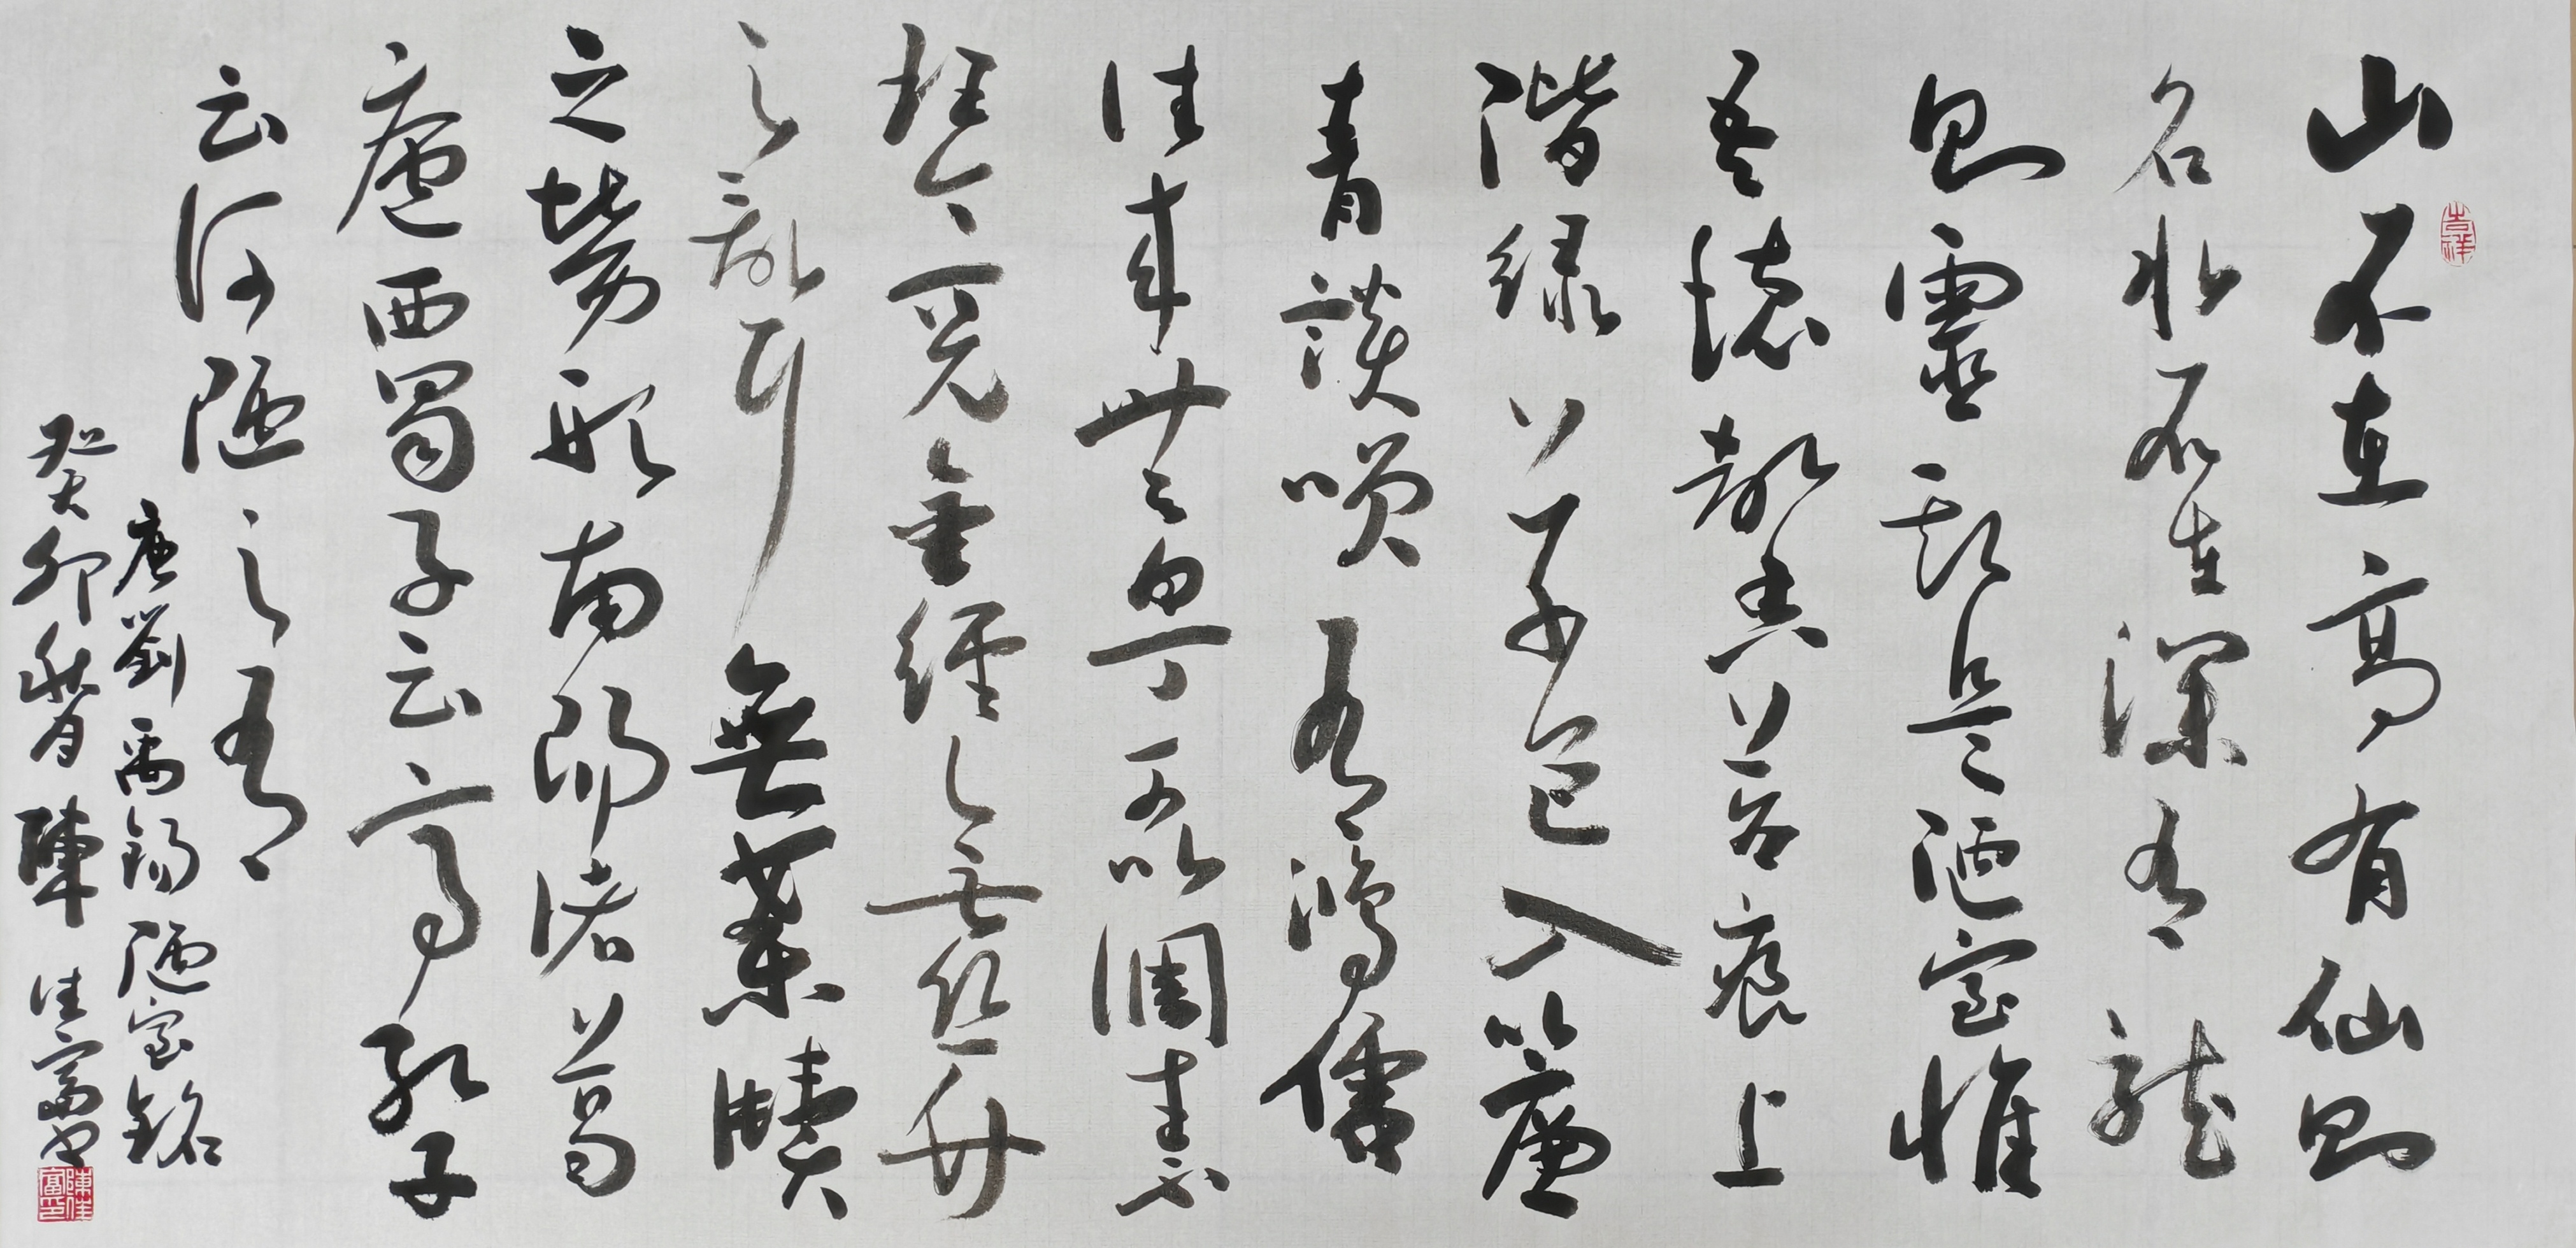 吉祥
山不在高有仙則
名水不在深有龍
則靈斯是陋室惟
吾德馨苔痕上
階綠草色入簾
青談咲有鴻儒
往來無白丁可以調素
琴閱金經無絲竹
之亂耳無案牘
之勞形南陽諸葛
廬西蜀子云亭孔子
云何陋之有
唐劉禹錫陋室銘
癸卯秋月陳佳富書
陳佳富印